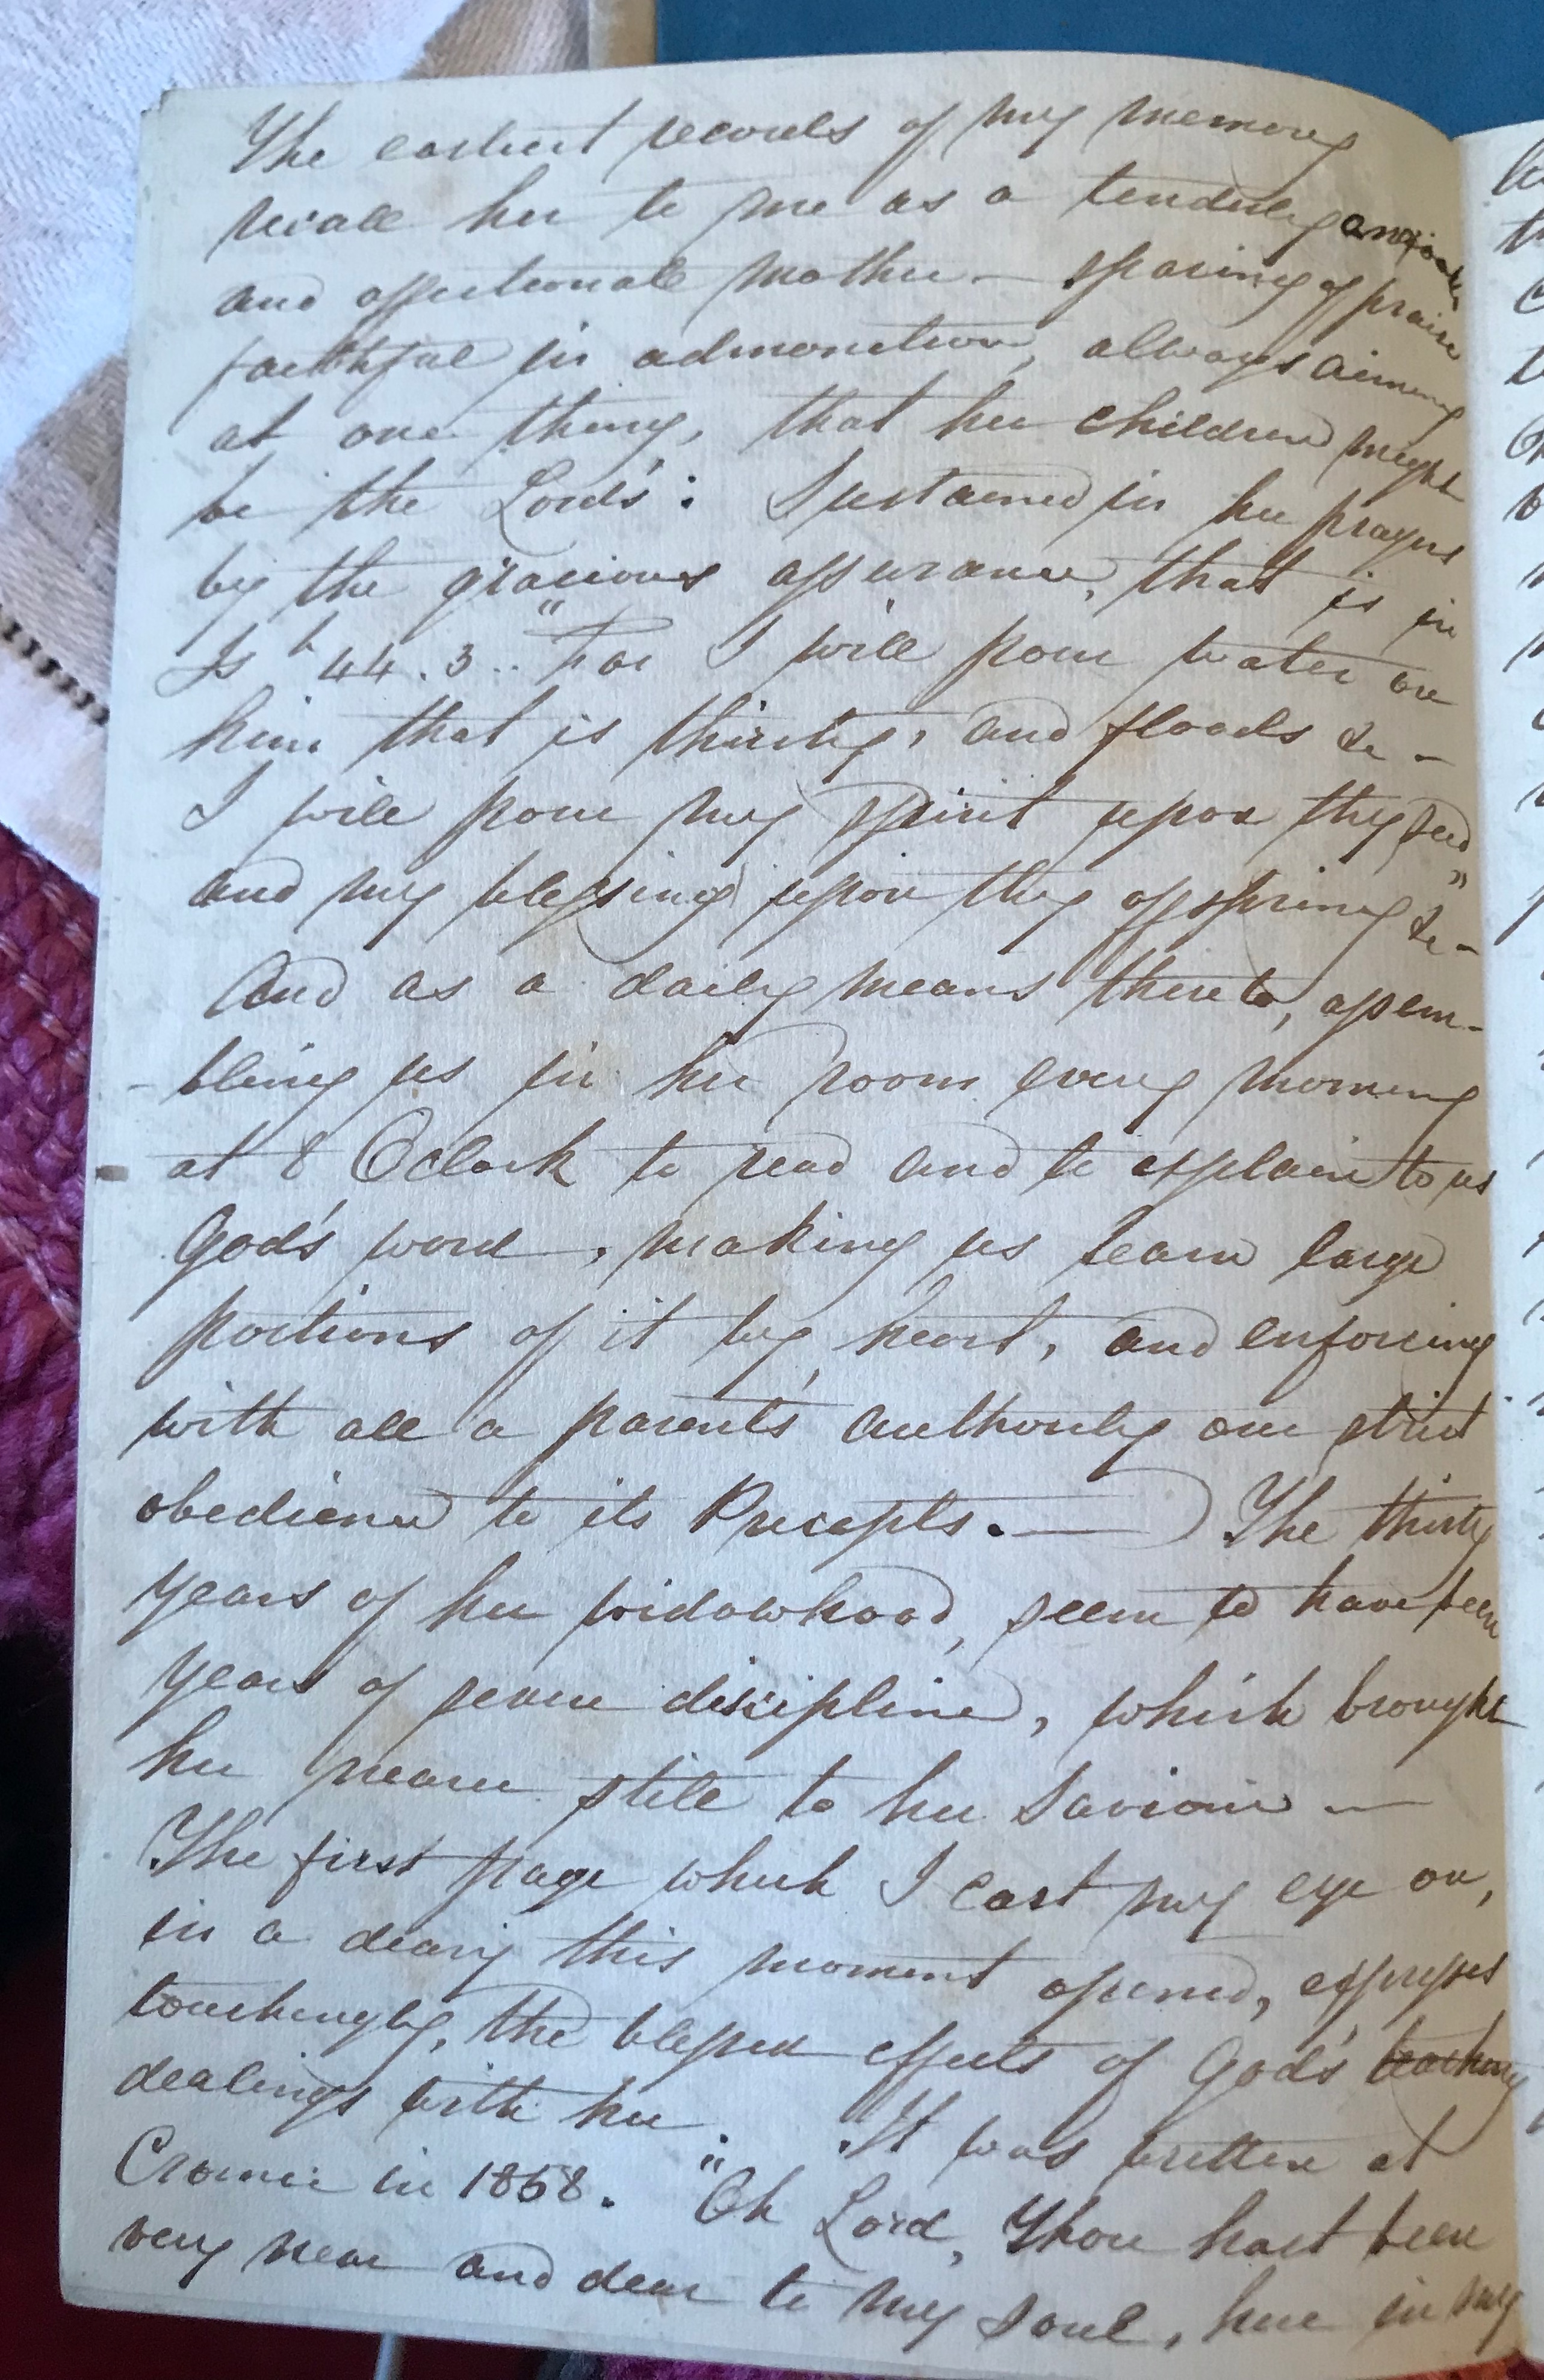 The earliest records of my memory
recall her to me as a tenderly anxious
and affectionate Mother — sparing of praise
faithful in admonition, always aiming
at one thing, that her children might
be the Lord's: Sustained in her prayers
by the gracious assurance, that is in
Is h 44.3.. "For I will pour water on
him that is thirsty, and floods &c —
I will pour my spirit upon thy seed
and my blessing upon thy offspring &c — "
And as a daily means thereto, assem-
- bling us in her room every morning
at 8 Oclock to read and to explain to us
God's word, making us learn large
portions of it by heart, and enforcing
with all a parent's authority our strict
obedience to its Precepts. — The thirty
years of her widowhood, seem to have been
years of severe discipline, which brought
her nearer still to her Saviour —
The first page which I cast my eye on,
in a diary this moment opened, expresses
touchingly, the blessed effects of God's teaching
dealings with her. It was written at
Cromer in 1858. "Oh Lord, Thou hast been
very near and dear to my soul, here in my